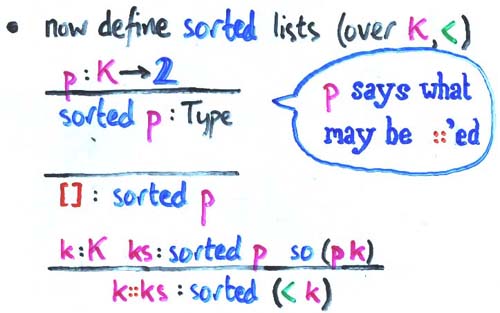 • now define sorted lists (over K,<)
p : K→2
sorted p : Type
p says what
may be ::'ed
[] : sorted p
k:K ks: sorted p so (p k)
k::ks : sorted (< k)